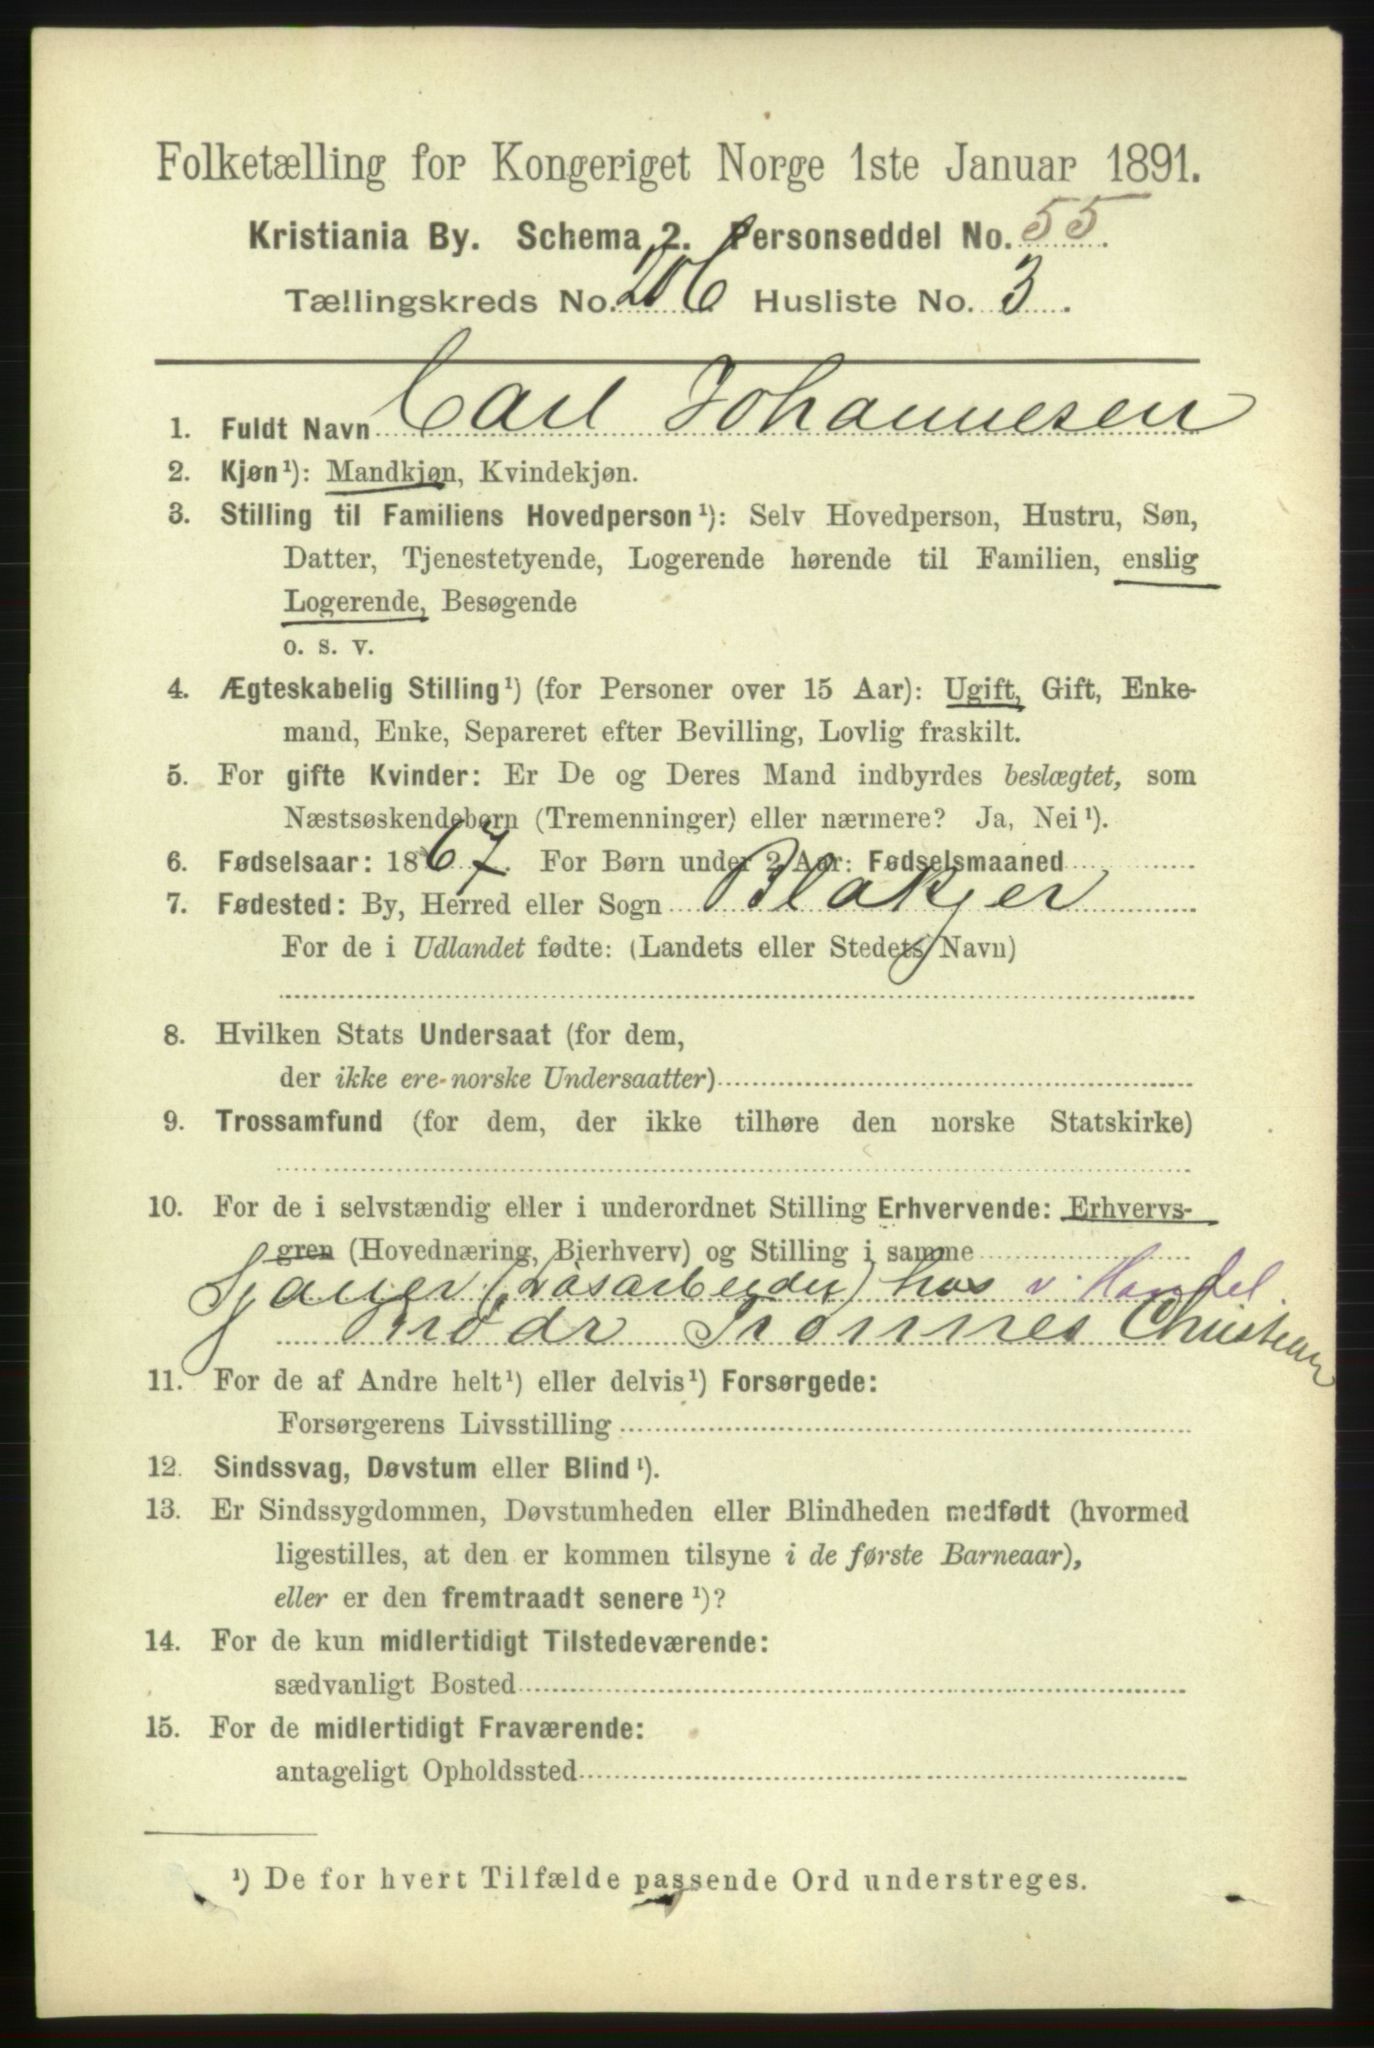 Folketælling for Kongeriget Norge 1ste Januar 1891.
Kristiania By. Schema 2. Personseddel No. 55.
Tællingskreds No. 206 Husliste No. 3.
1. Fuldt Navn Carl Johannesen
2. Kjøn¹): Mandkjøn, Kvindekjøn.
3. Stilling til Familiens Hovedperson¹): Selv Hovedperson, Hustru, Søn,
Datter, Tjenestetyende, Logerende hørende til Familien, enslig
Logerende, Besøgende
o. s. v.
4. Ægteskabelig Stilling¹) (for Personer over 15 Aar): Ugift, Gift, Enke-
mand, Enke, Separeret efter Bevilling, Lovlig fraskilt.
5. For gifte Kvinder: Er De og Deres Mand indbyrdes beslægtet, som
Næstsøskendebørn (Tremenninger) eller nærmere? Ja, Nei¹).
6. Fødselsaar: 1867. For Børn under 2 Aar: Fødselsmaaned
7. Fødested: By, Herred eller Sogn Blakjer
For de i Udlandet fødte: (Landets eller Stedets Navn)
8. Hvilken Stats Undersaat (for dem,
der ikke ere norske Undersaatter)
9. Trossamfund (for dem, der ikke tilhøre den norske Statskirke)
10. For de i selvstændig eller i underordnet Stilling Erhvervende: Erhvervs-
gren (Hovednæring, Bierhverv) og Stilling i samme
Sjauer (Løsarbeider) hos v. Handel.
Brødr Christian
11. For de af Andre helt¹) eller delvis¹) Forsørgede:
Forsørgerens Livsstilling
12. Sindssvag, Døvstum eller Blind¹).
13. Er Sindssygdommen, Døvstumheden eller Blindheden medfødt (hvormed
ligestilles, at den er kommen tilsyne i de første Barneaar),
eller er den fremtraadt senere¹)?
14. For de kun midlertidigt Tilstedeværende:
sædvanligt Bosted
15. For de midlertidigt Fraværende:
antageligt Opholdssted
¹) De for hvert Tilfælde passende Ord understreges.